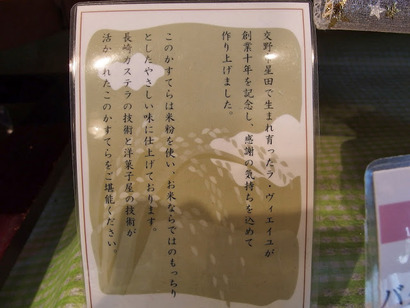 交野市星田で生まれ育ったラ・ヴィエイユが
創業十年を記念し、感謝の気持ちを込めて
作り上げました。
このかすてらは米粉を使い、お米ならではのもっちり
としたやさしい味に仕上げております。
長崎カステラの技術と洋菓子屋の技術が
活かされたこのかすてらをご堪能ください。
バ